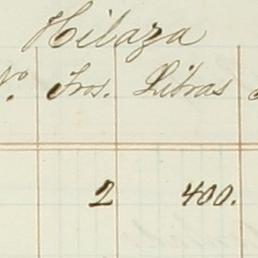 Hilaza
Nº. Fros. Libras
2 400.